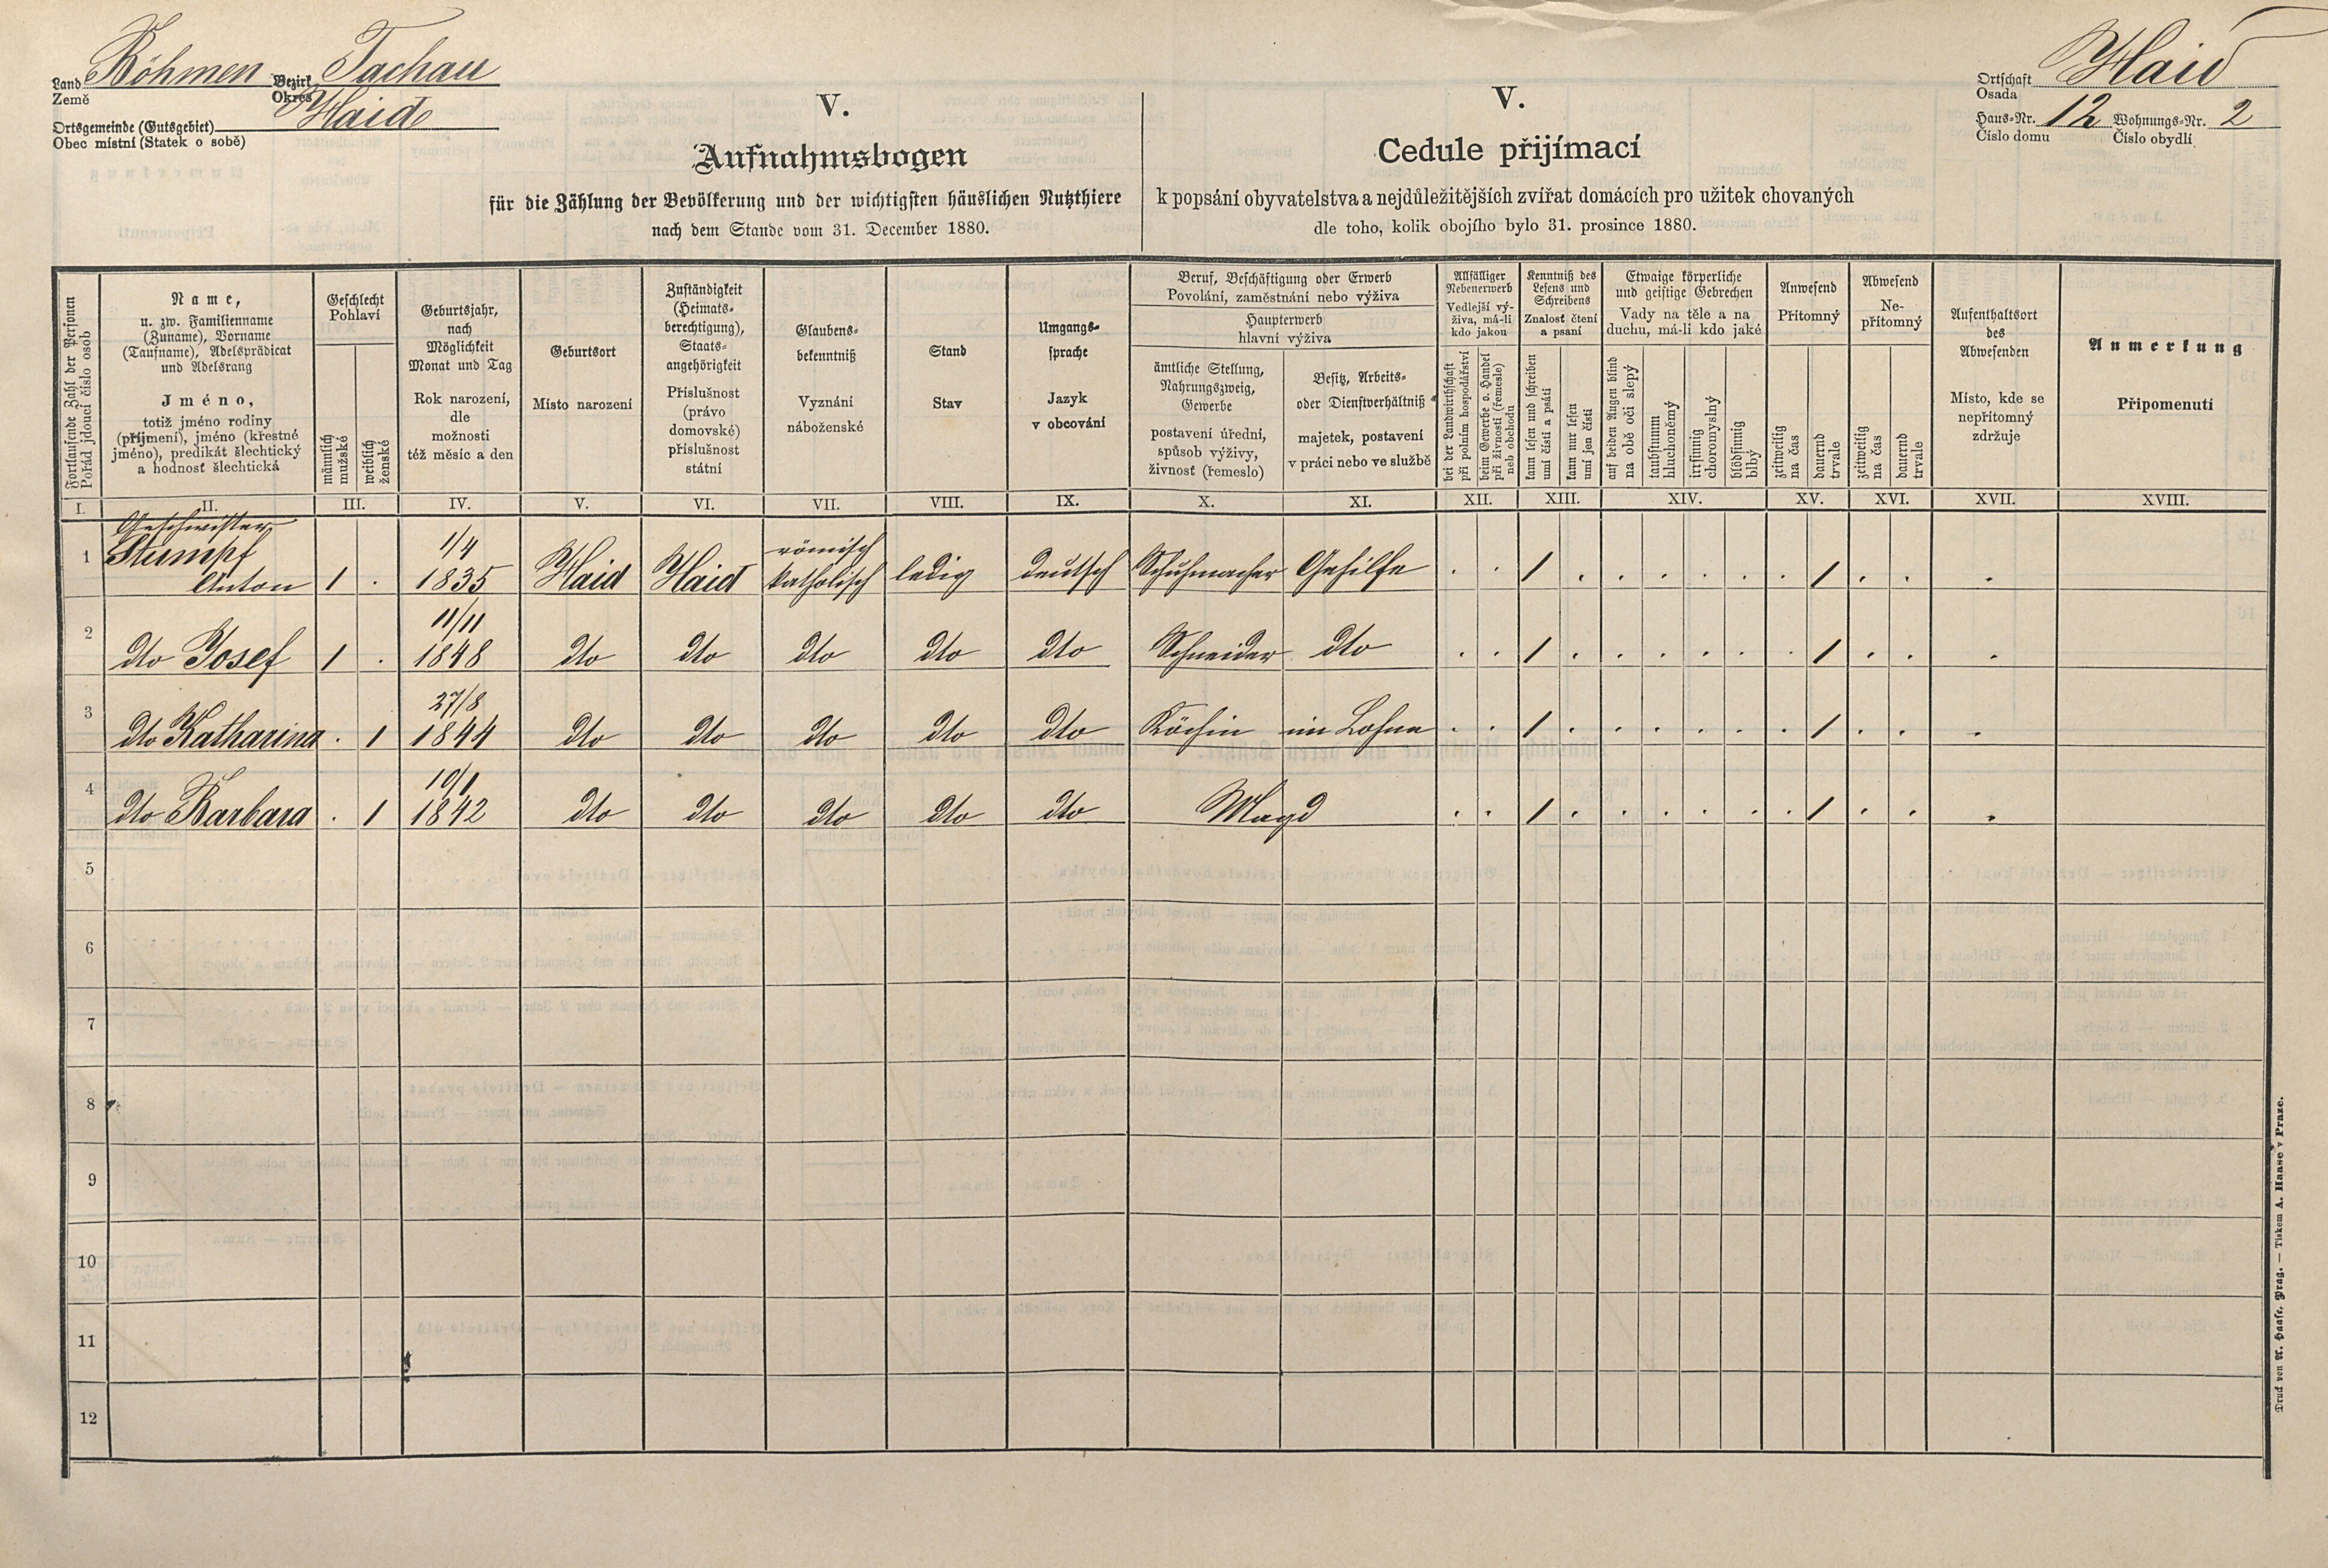 Land Böhmen Bezirk Tachau
Země Okres
Ortsgemeinde (Gutsgebiet) Haid
Obec místní (Statek o sobě)
V.
Aufnahmsbogen
für die Zählung der Bevölkerung und der wichtigsten häuslichen Nutzthiere
nach dem Stande vom 31. December 1880.
V.
Cedule přijímací
k popsání obyvatelstva a nejdůležitějších zvířat domácích pro užitek chovaných
dle toho, kolik obojího bylo 31. prosince 1880.
Ortschaft Haid
Osada
Haus-Nr. 12 Wohnungs-Nr. 2
Číslo domu Číslo obydlí
Fortlaufende Zahl der Personen
Pořád jdoucí číslo osob
Name,
u. zw. Familienname
(Zuname), Vorname
(Taufname), Adelsprädicat
und Adelsrang
Jméno,
totiž jméno rodiny
(příjmení), jméno (křestné
jméno), predikát šlechtický
a hodnost šlechtická
Geschlecht
Pohlaví
männlich
mužské
weiblich
ženské
Geburtsjahr,
nach
Möglichkeit
Monat und Tag
Rok narození,
dle
možnosti
též měsíc a den
Geburtsort
Místo narození
Zuständigkeit
(Heimats-
berechtigung),
Staats-
angehörigkeit
Příslušnost
(právo
domovské)
příslušnost
státní
Glaubens-
bekenntniß
Vyznání
náboženské
Stand
Stav
Umgangs-
sprache
Jazyk
v obcování
Beruf, Beschäftigung oder Erwerb
Povolání, zaměstnání nebo výživa
Haupterwerb
hlavní výživa
ämtliche Stellung,
Nahrungszweig,
Gewerbe
postavení úřední,
spůsob výživy,
živnost (řemeslo)
Besitz, Arbeits-
oder Dienstverhältniß
majetek, postavení
v práci nebo ve službě
Allfälliger
Nebenerwerb
Vedlejší vý-
živa, má-li
kdo jakou
bei der Landwirthschaft
při polním hospodářství
beim Gewerbe o. Handel
při živnosti (řemesle)
neb obchodu
Kenntniß des
Lesens und
Schreibens
Znalost čtení
a psaní
kann lesen und schreiben
umí čísti a psáti
kann nur lesen
umí jen čísti
Etwaige körperliche
und geistige Gebrechen
Vady na těle a na
duchu, má-li kdo jaké
auf beiden Augen blind
na obě oči slepý
taubstumm
hluchoněmý
irrsinnig
choromyslný
blödsinnig
blbý
Anwesend
Přítomný
zeitweilig
na čas
dauernd
trvale
Abwesend
Ne-
přítomný
zeitweilig
na čas
dauernd
trvale
Aufenthaltsort
des
Abwesenden
Místo, kde se
nepřítomný
zdržuje
Anmerkung
Připomenutí
I. II. III. IV. V. VI. VII. VIII. IX. X. XI. XII. XIII. XIV. XV. XVI. XVII. XVIII.
Geschwister
Stumpf 1/4 römisch
1 Anton 1 . 1835 Haid Haid katholisch ledig deutsch Schuhmacher Gehilfe . . 1 . . . . . . 1 . . .
11/11
2 dto Josef 1 . 1848 dto dto dto dto dto Schneider dto . . 1 . . . . . . 1 . . .
27/8
3 dto Katharina . 1 1844 dto dto dto dto dto Köchin im Lohne . . 1 . . . . . . 1 . . .
10/1
4 dto Barbara . 1 1842 dto dto dto dto dto Magd . . 1 . . . . . . 1 . . .
5
6
7
8
9
10
11
12
Druck von A. Haase, Prag. — Tiskem A. Haase v Praze.